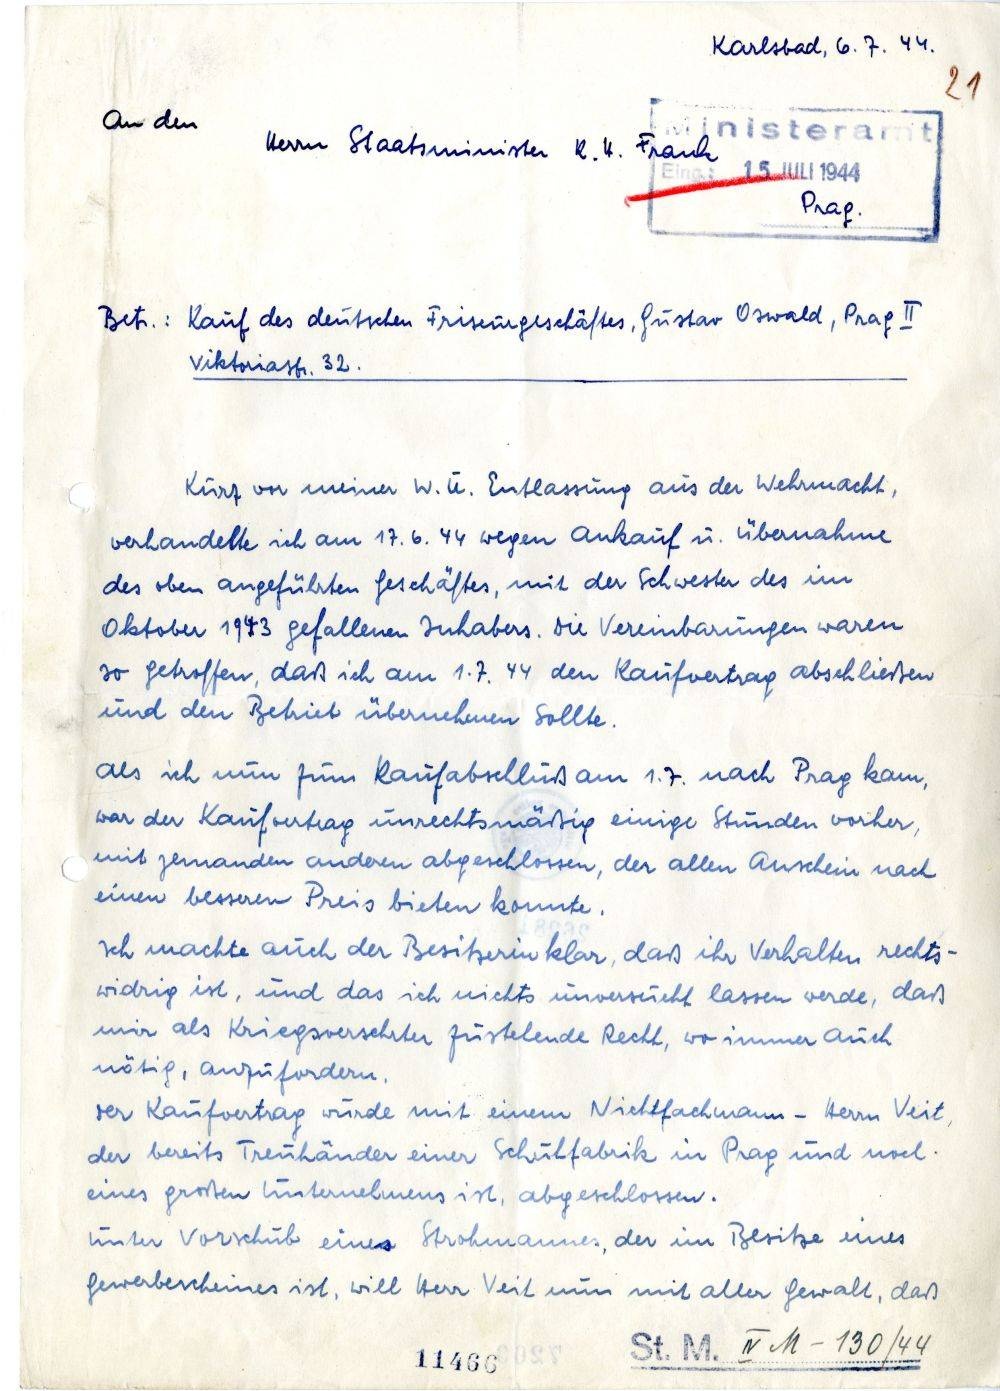 Karlsbad, 6. 7. 44.
21
An den
Herrn Staatsminister K. H. Frank
Ministeramt
Eing.: 15 JULI 1944
Prag.
Betr.: Kauf des deutschen Friseurgeschäftes, Gustav Oswald, Prag II
Viktoriastr. 32.
Kurz vor meiner W. U. Entlassung aus der Wehrmacht,
verhandelte ich am 17. 6. 44 wegen Ankauf u. Übernahme
des oben angeführten Geschäftes, mit der Schwester des im
Oktober 1943 gefallenen Inhabers. Die Vereinbarungen waren
so getroffen, daß ich am 1. 7. 44 den Kaufvertrag abschließen
und den Betrieb übernehmen sollte.
Als ich nun zum Kaufabschluß am 1. 7. nach Prag kam,
war der Kaufvertrag unrechtsmäßig einige Stunden vorher,
mit jemanden anderen abgeschlossen, der allen Anschein nach
einen besseren Preis bieten konnte.
Ich machte auch der Besitzerin klar, daß ihr Verhalten rechts-
widrig ist, und das ich nichts unversucht lassen werde, daß
mir als Kriegsversehrter zustehende Recht, wo immer auch
nötig, anzufordern.
Der Kaufvertrag wurde mit einem Nichtfachmann – Herrn Veit,
der bereits Treuhänder einer Schuhfabrik in Prag und noch
eines großen Unternehmens ist, abgeschlossen.
Unter Vorschub eines Strohmannes, der im Besitze eines
Gewerbescheines ist, will Herr Veit nun mit aller Gewalt, daß
11466
St. M. IV M – 130/44